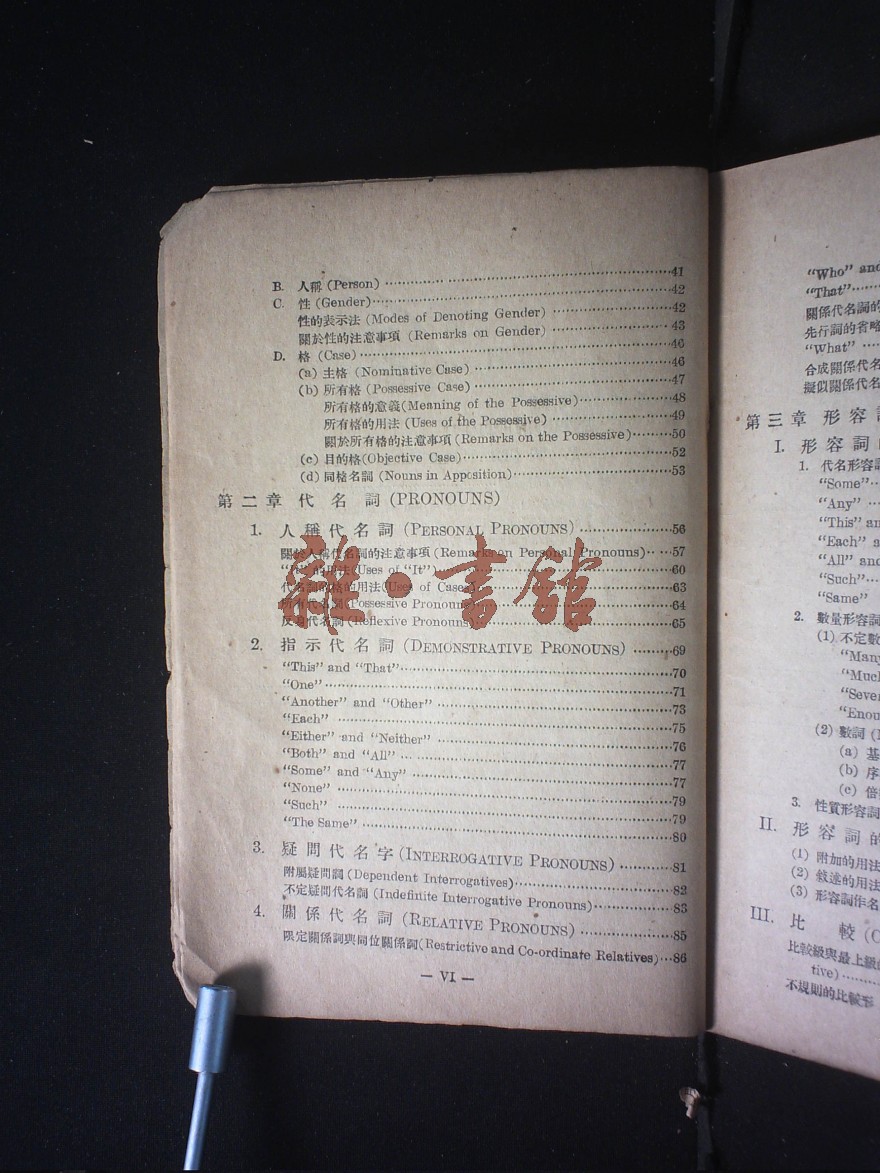 B. 人稱 (Person) 41
C. 性 (Gender) 42
性的表示法 (Modes of Denoting Gender) 42
關於性的注意事項 (Remarks on Gender) 43
D. 格 (Case) 46
(a) 主格 (Nominative Case) 46
(b) 所有格 (Possessive Case) 47
所有格的意義 (Meaning of the Possessive) 48
所有格的用法 (Uses of the Possessive) 49
關於所有格的注意事項 (Remarks on the Possessive) 50
(c) 目的格 (Objective Case) 52
(d) 同格名詞 (Nouns in Apposition) 53
第二章 代名詞 (PRONOUNS)
1. 人稱代名詞 (PERSONAL PRONOUNS) 56
關於人稱代名詞的注意事項 (Remarks on Personal Pronouns) 57
"It" 的用法 (Uses of "It") 60
代名詞的格的用法 (Uses of Cases) 63
所有代名詞 (Possessive Pronouns) 64
反身代名詞 (Reflexive Pronouns) 65
雜·書館
2. 指示代名詞 (DEMONSTRATIVE PRONOUNS) 69
"This" and "That" 70
"One" 71
"Another" and "Other" 73
"Each" 75
"Either" and "Neither" 76
"Both" and "All" 77
"Some" and "Any" 77
"None" 79
"Such" 79
"The Same" 80
3. 疑問代名字 (INTERROGATIVE PRONOUNS) 81
附屬疑問詞 (Dependent Interrogatives) 82
不定疑問代名詞 (Indefinite Interrogative Pronouns) 83
4. 關係代名詞 (RELATIVE PRONOUNS) 85
限定關係詞與同位關係詞 (Restrictive and Co-ordinate Relatives) 86
— VI —
"Who" and
"That"
關係代名詞的
先行詞的省略
"What"
合成關係代名
擬似關係代名
第三章 形容
I. 形容詞
1. 代名形容
"Some"
"Any"
"This" an
"Each" a
"All" and
"Such"
"Same"
2. 數量形容詞
(1) 不定數
"Many
"Much
"Seve
"Enou
(2) 數詞
(a) 基
(b) 序
(c) 倍
3. 性質形容詞
II. 形容詞的
(1) 附加的用法
(2) 敘述的用法
(3) 形容詞作名
III. 比較 (C
比較級與最上級的
tive)
不規則的比較形